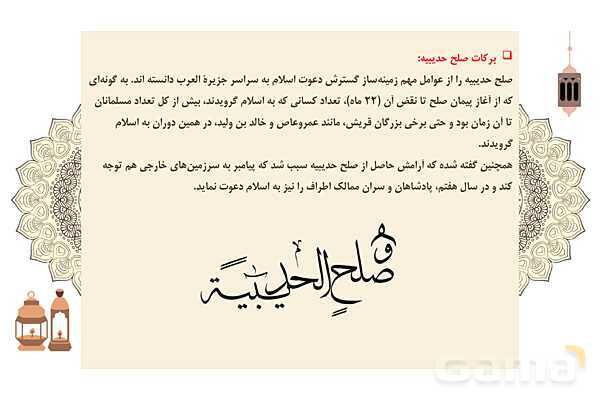 برکات صلح حدیبیه:
صلح حدیبیه را از عوامل مهم زمینه‌ساز گسترش دعوت اسلام به سراسر جزیرة العرب دانسته اند. به گونه‌ای
که از آغاز پیمان صلح تا نقض آن (۲۲ ماه)، تعداد کسانی که به اسلام گرویدند، بیش از کل تعداد مسلمانان
تا آن زمان بود و حتی برخی بزرگان قریش، مانند عمروعاص و خالد بن ولید، در همین دوران به اسلام
گرویدند.
همچنین گفته شده که آرامش حاصل از صلح حدیبیه سبب شد که پیامبر به سرزمین‌های خارجی هم توجه
کند و در سال هفتم، پادشاهان و سران ممالک اطراف را نیز به اسلام دعوت نماید.
صلح الحديبية
Gama